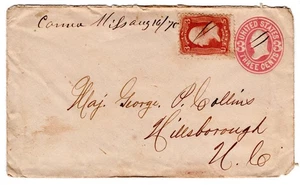 Miss Aug 16/70
UNITED STATES
THREE CENTS
Maj. George. P. Collins
Hillsborough
N. C